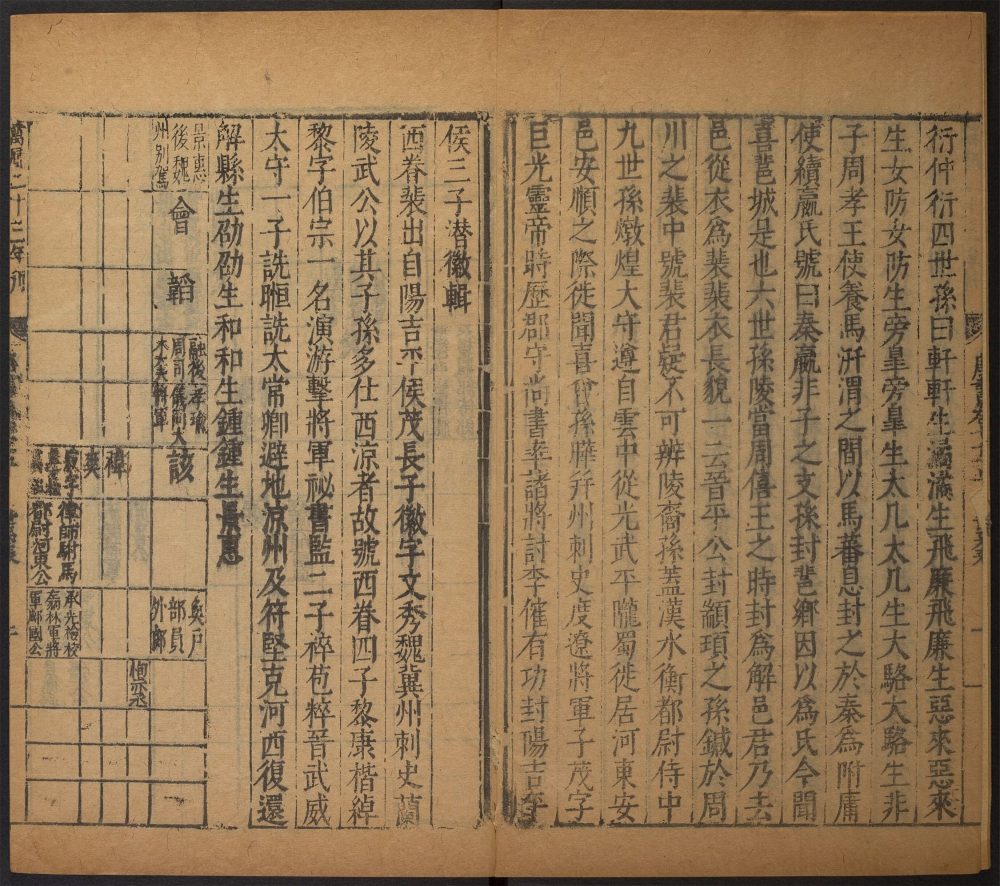 衍仲衍四世孫曰軒軒生潏潏生飛廉飛廉生惡來惡來
生女防女防生旁皐旁皐生太几太几生大駱大駱生非
子周孝王使養馬汧渭之間以馬蕃息封之於秦為附庸
使續嬴氏號曰秦嬴非子之支孫封䣛鄉因以為氏今聞
喜䣛城是也六世孫陵當周僖王之時封為解邑君乃去
邑從衣為裴裴衣長貌一云晉平公封顓頊之孫鍼於周
川之裴中號裴君疑不可辨陵裔孫蓋漢水衡都尉侍中
九世孫燉煌大守遵自雲中從光武平隴蜀徙居河東安
邑安順之際徙聞喜曾孫曄幷州刺史度遼將軍子茂字
巨光靈帝時歷郡守尚書率諸將討李傕有功封陽吉平
侯三子潛徽輯
西眷裴出自陽吉平侯茂長子徽字文秀魏冀州刺史蘭
陵武公以其子孫多仕西涼者故號西眷四子黎康楷綽
黎字伯宗一名演游擊將軍祕書監二子粹苞粹晉武威
太守一子詵暅詵太常卿避地涼州及苻堅克河西復還
解縣生劭劭生和和生鍾鍾生長惠
景惠
後魏
州別駕
會
韜
融後
周司
大將軍
該
禕
爽
律師駙馬
都尉河東公
承先檢校
羽林軍將
軍鄖國公
奐戶
部員
外郎